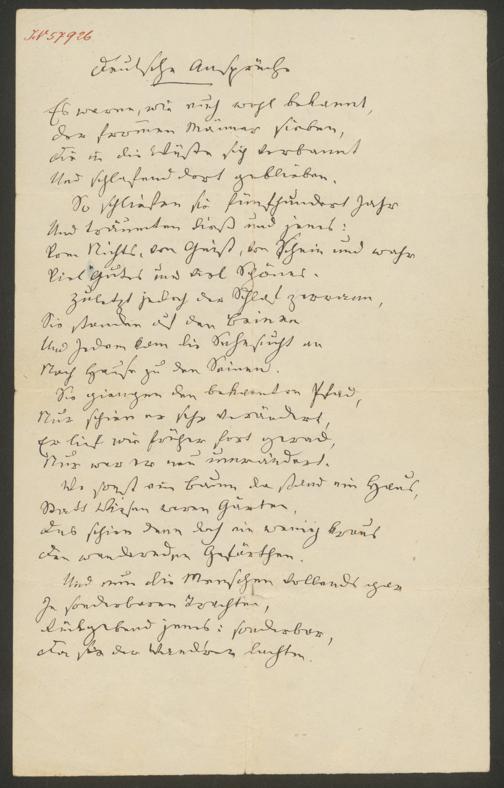 JN 57926
Deutsche Ansprüche
Es waren, wie euch wohl bekannt,
Der frommen Männer sieben,
Die in die Wüste sich verbannt
Und schlafend dort geblieben.
So schliefen sie fünfhundert Jahr
Und träumten dieß und jenes:
Vom Nichts, von Geist, von Schein und wahr
Viel Gutes und viel Schönes.
Zuletzt jedoch der Schlaf zerrann,
Sie standen auf den Beinen
Und Jedem kam die Sehnsucht an
Nach Hause zu den Seinen.
Sie giengen den bekannten Pfad,
Nur schien er sehr verändert,
Er lief wie früher fort gerad,
Nur war er neu umrändert.
Wo sonst ein Baum da stand ein Haus,
Statt Wiesen waren Gärten,
Das schien denn doch ein wenig kraus
Den wandernden Gefährten.
Und nun die Menschen vollends gar
In sonderbaren Trachten,
jenes: sonderbar,
der lachten.